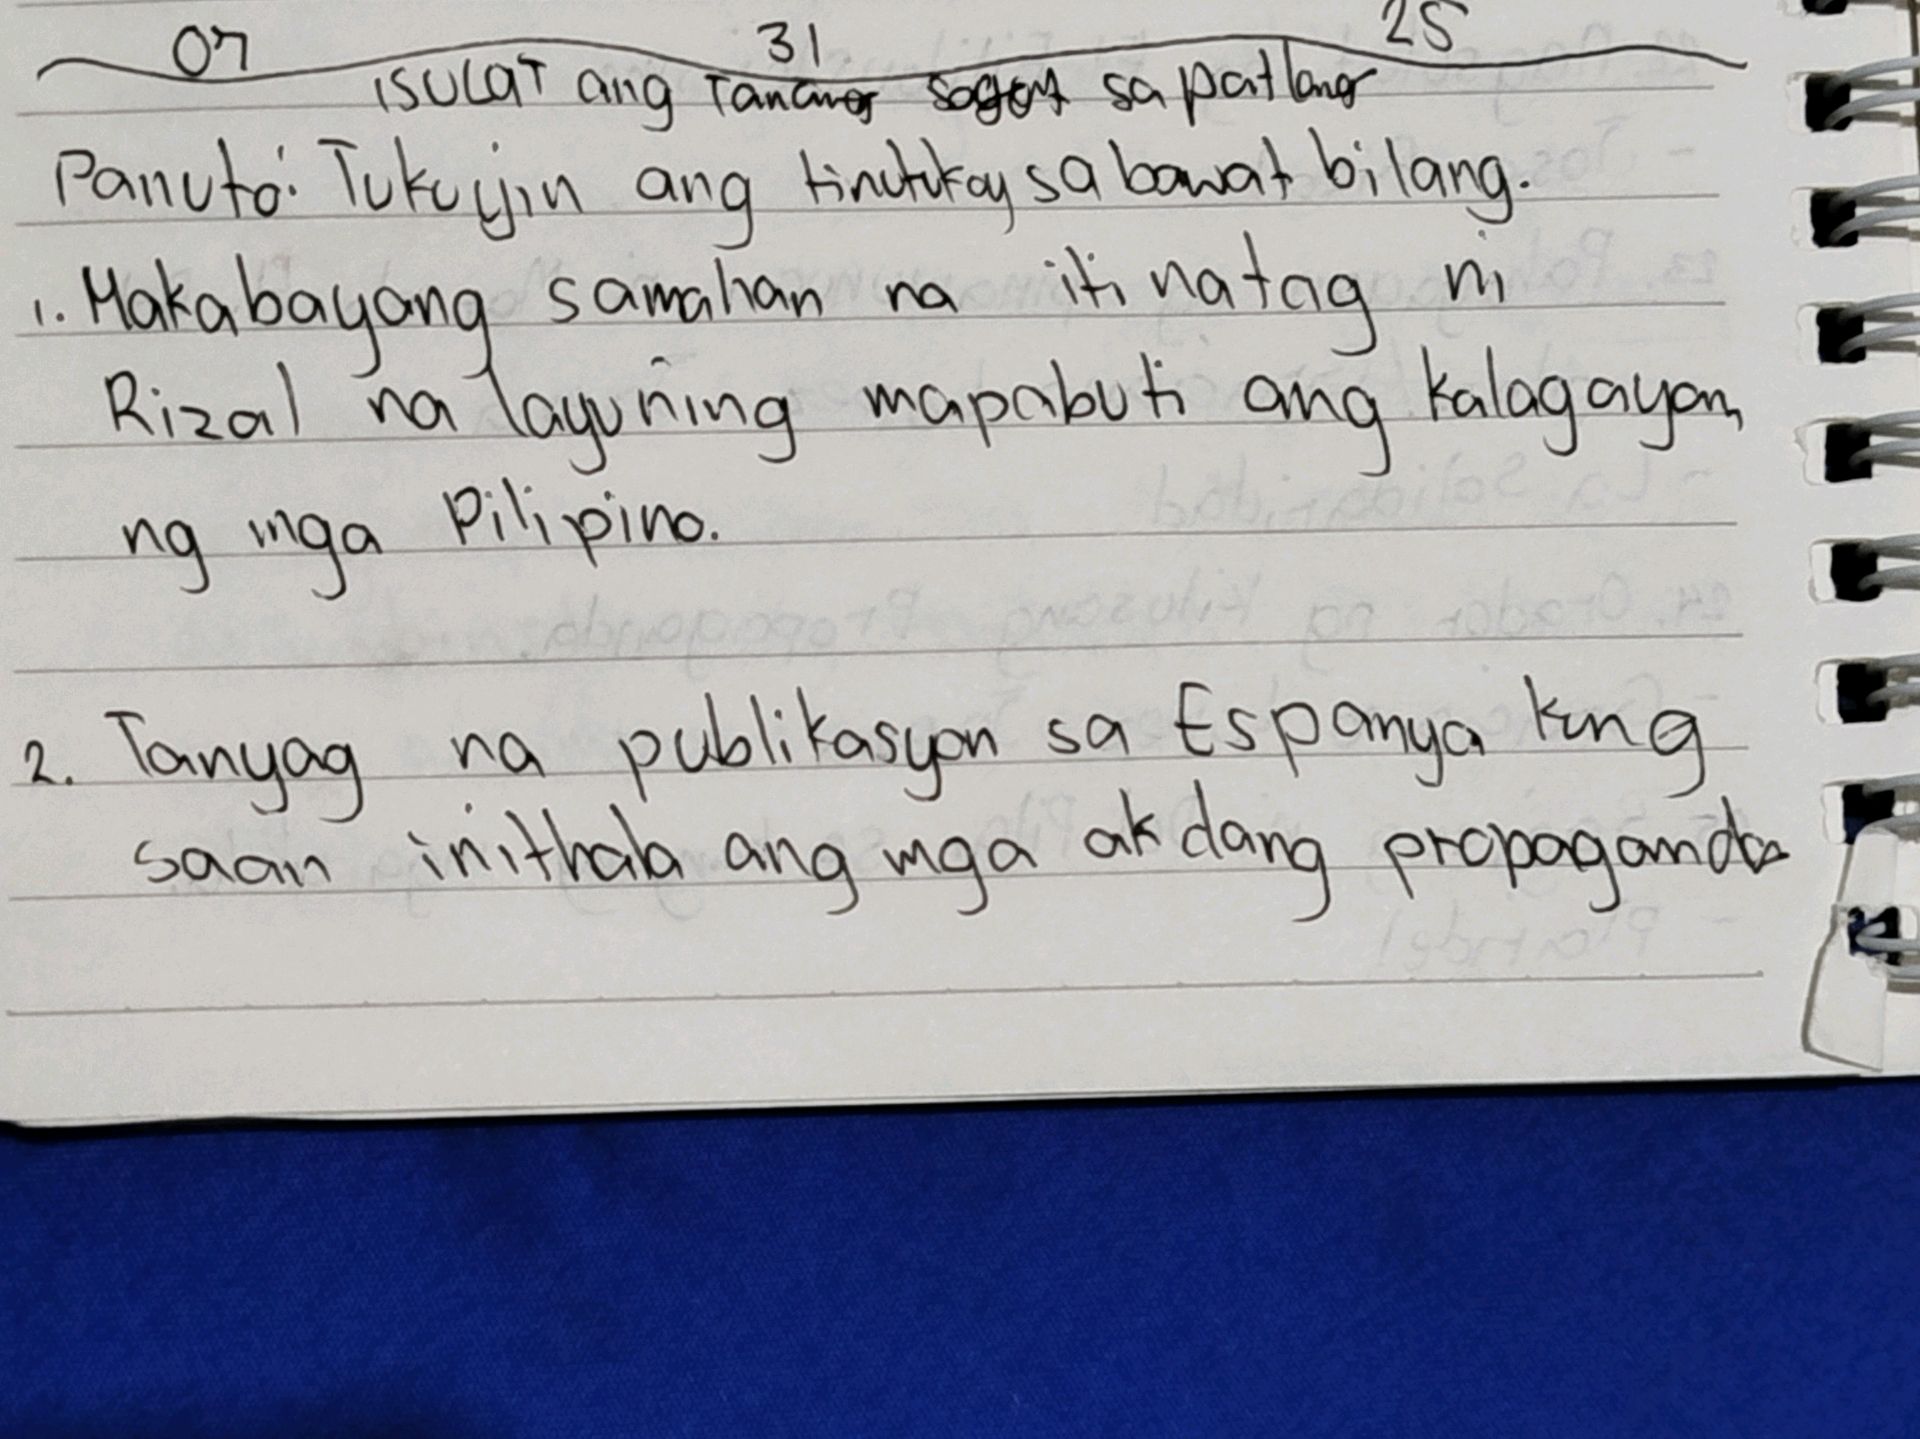 07 31 25
ISULAT ang Tamang sagot sa patlang
Panuto: Tukuyin ang tinutukoy sa bawat bilang.
1. Makabayang samahan na itinatag ni
Rizal na layuning mapabuti ang kalagayan
ng mga Pilipino.
2. Tanyag na publikasyon sa Espanya kung
saan inithala ang mga akdang propaganda